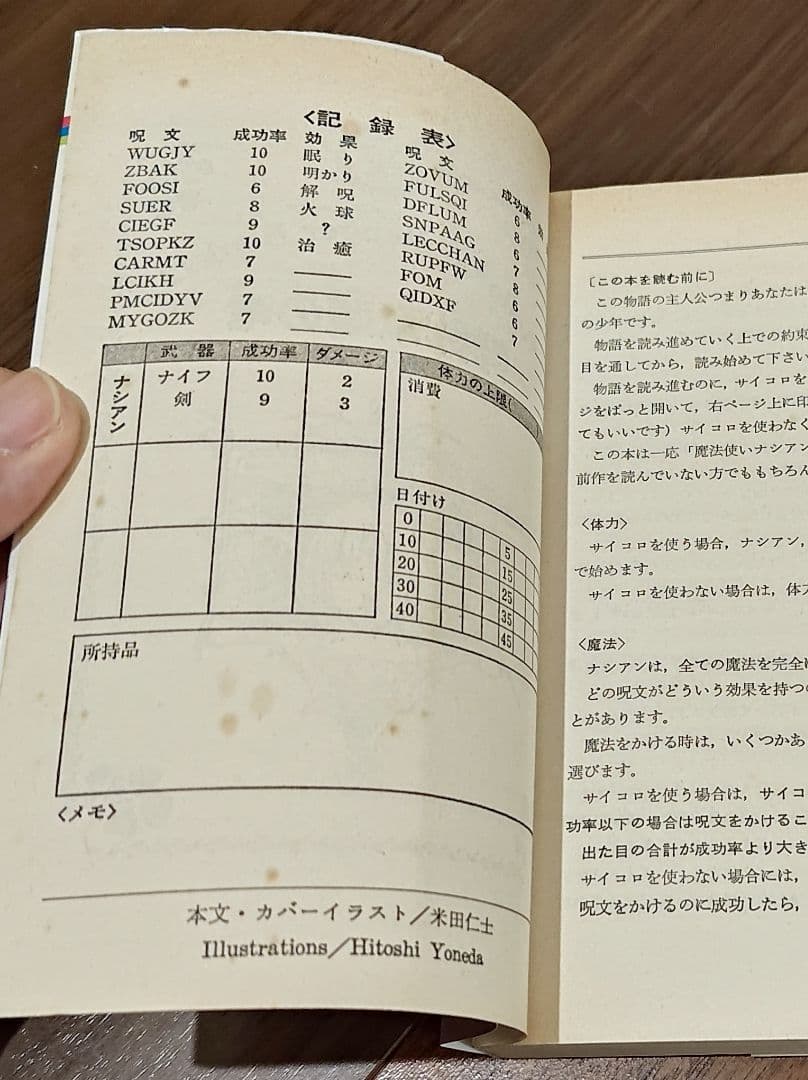 〈記録表〉
呪文 成功率 効果
WUGJY 10 眠り
ZBAK 10 明かり
FOOSI 6 解呪
SUER 8 火球
CIEGF 9 ?
TSOPKZ 10 治癒
CARMT 7
LCIKH 9
PMCIDYV 7
MYGOZK 7
呪文 成功率
ZOVUM 6
FULSQI 8
DFLUM 6
SNPAAG 7
LECCHAN 8
RUPFW 6
FOM 6
QIDXF 7
武器 成功率 ダメージ
ナシアン
ナイフ 10 2
剣 9 3
体力の上限(
消費
日付け
0 5
10 15
20 25
30 35
40 45
所持品
〈メモ〉
本文・カバーイラスト/米田仁士
Illustrations/Hitoshi Yoneda
〔この本を読む前に〕
この物語の主人公つまりあなたは
の少年です。
物語を読み進めていく上での約束
目を通してから,読み始めて下さい
物語を読み進むのに,サイコロを
ジをぱっと開いて,右ページ上に印
てもいいです)サイコロを使わなく
この本は一応「魔法使いナシアン
前作を読んでいない方でももちろん
〈体力〉
サイコロを使う場合,ナシアン,
で始めます。
サイコロを使わない場合は,体力
〈魔法〉
ナシアンは,全ての魔法を完全に
どの呪文がどういう効果を持つの
とがあります。
魔法をかける時は,いくつかあ
選びます。
サイコロを使う場合は,サイコ
功率以下の場合は呪文をかけるこ
出た目の合計が成功率より大き
サイコロを使わない場合には,
呪文をかけるのに成功したら,